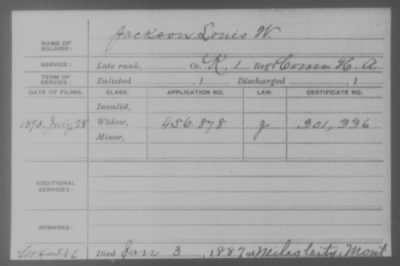 NAME OF SOLDIER: Jackson Louis W.
SERVICE: Late rank, Co. K, 1 Reg't Conn H. A
TERM OF SERVICE: Enlisted , 1 Discharged , 1
DATE OF FILING. CLASS. APPLICATION NO. LAW. CERTIFICATE NO.
Invalid,
1890, July 28 Widow, 456.878 g 301,336
Minor,
ADDITIONAL SERVICES:
REMARKS:
Died Jan 3, 1887 at Miles City, Mont